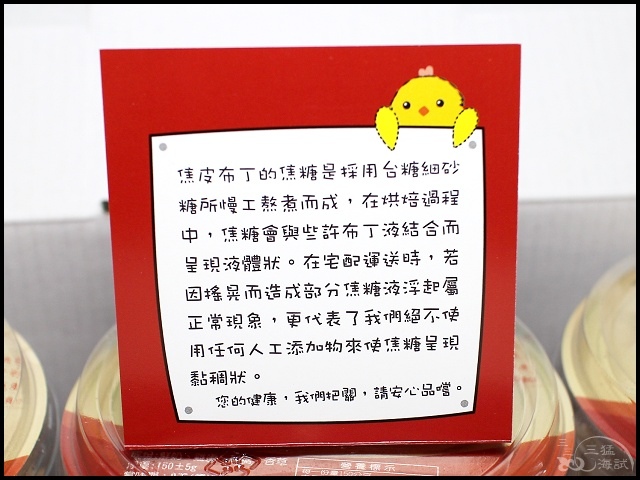 焦皮布丁的焦糖是採用台糖細砂
糖所慢工熬煮而成，在烘焙過程
中，焦糖會與些許布丁液結合而
呈現液體狀。在宅配運送時，若
因搖晃而造成部分焦糖液浮起屬
正常現象，更代表了我們絕不使
用任何人工添加物來使焦糖呈現
黏稠狀。
您的健康，我們把關，請安心品嚐。
150±5g
營養標示
三猛
海試